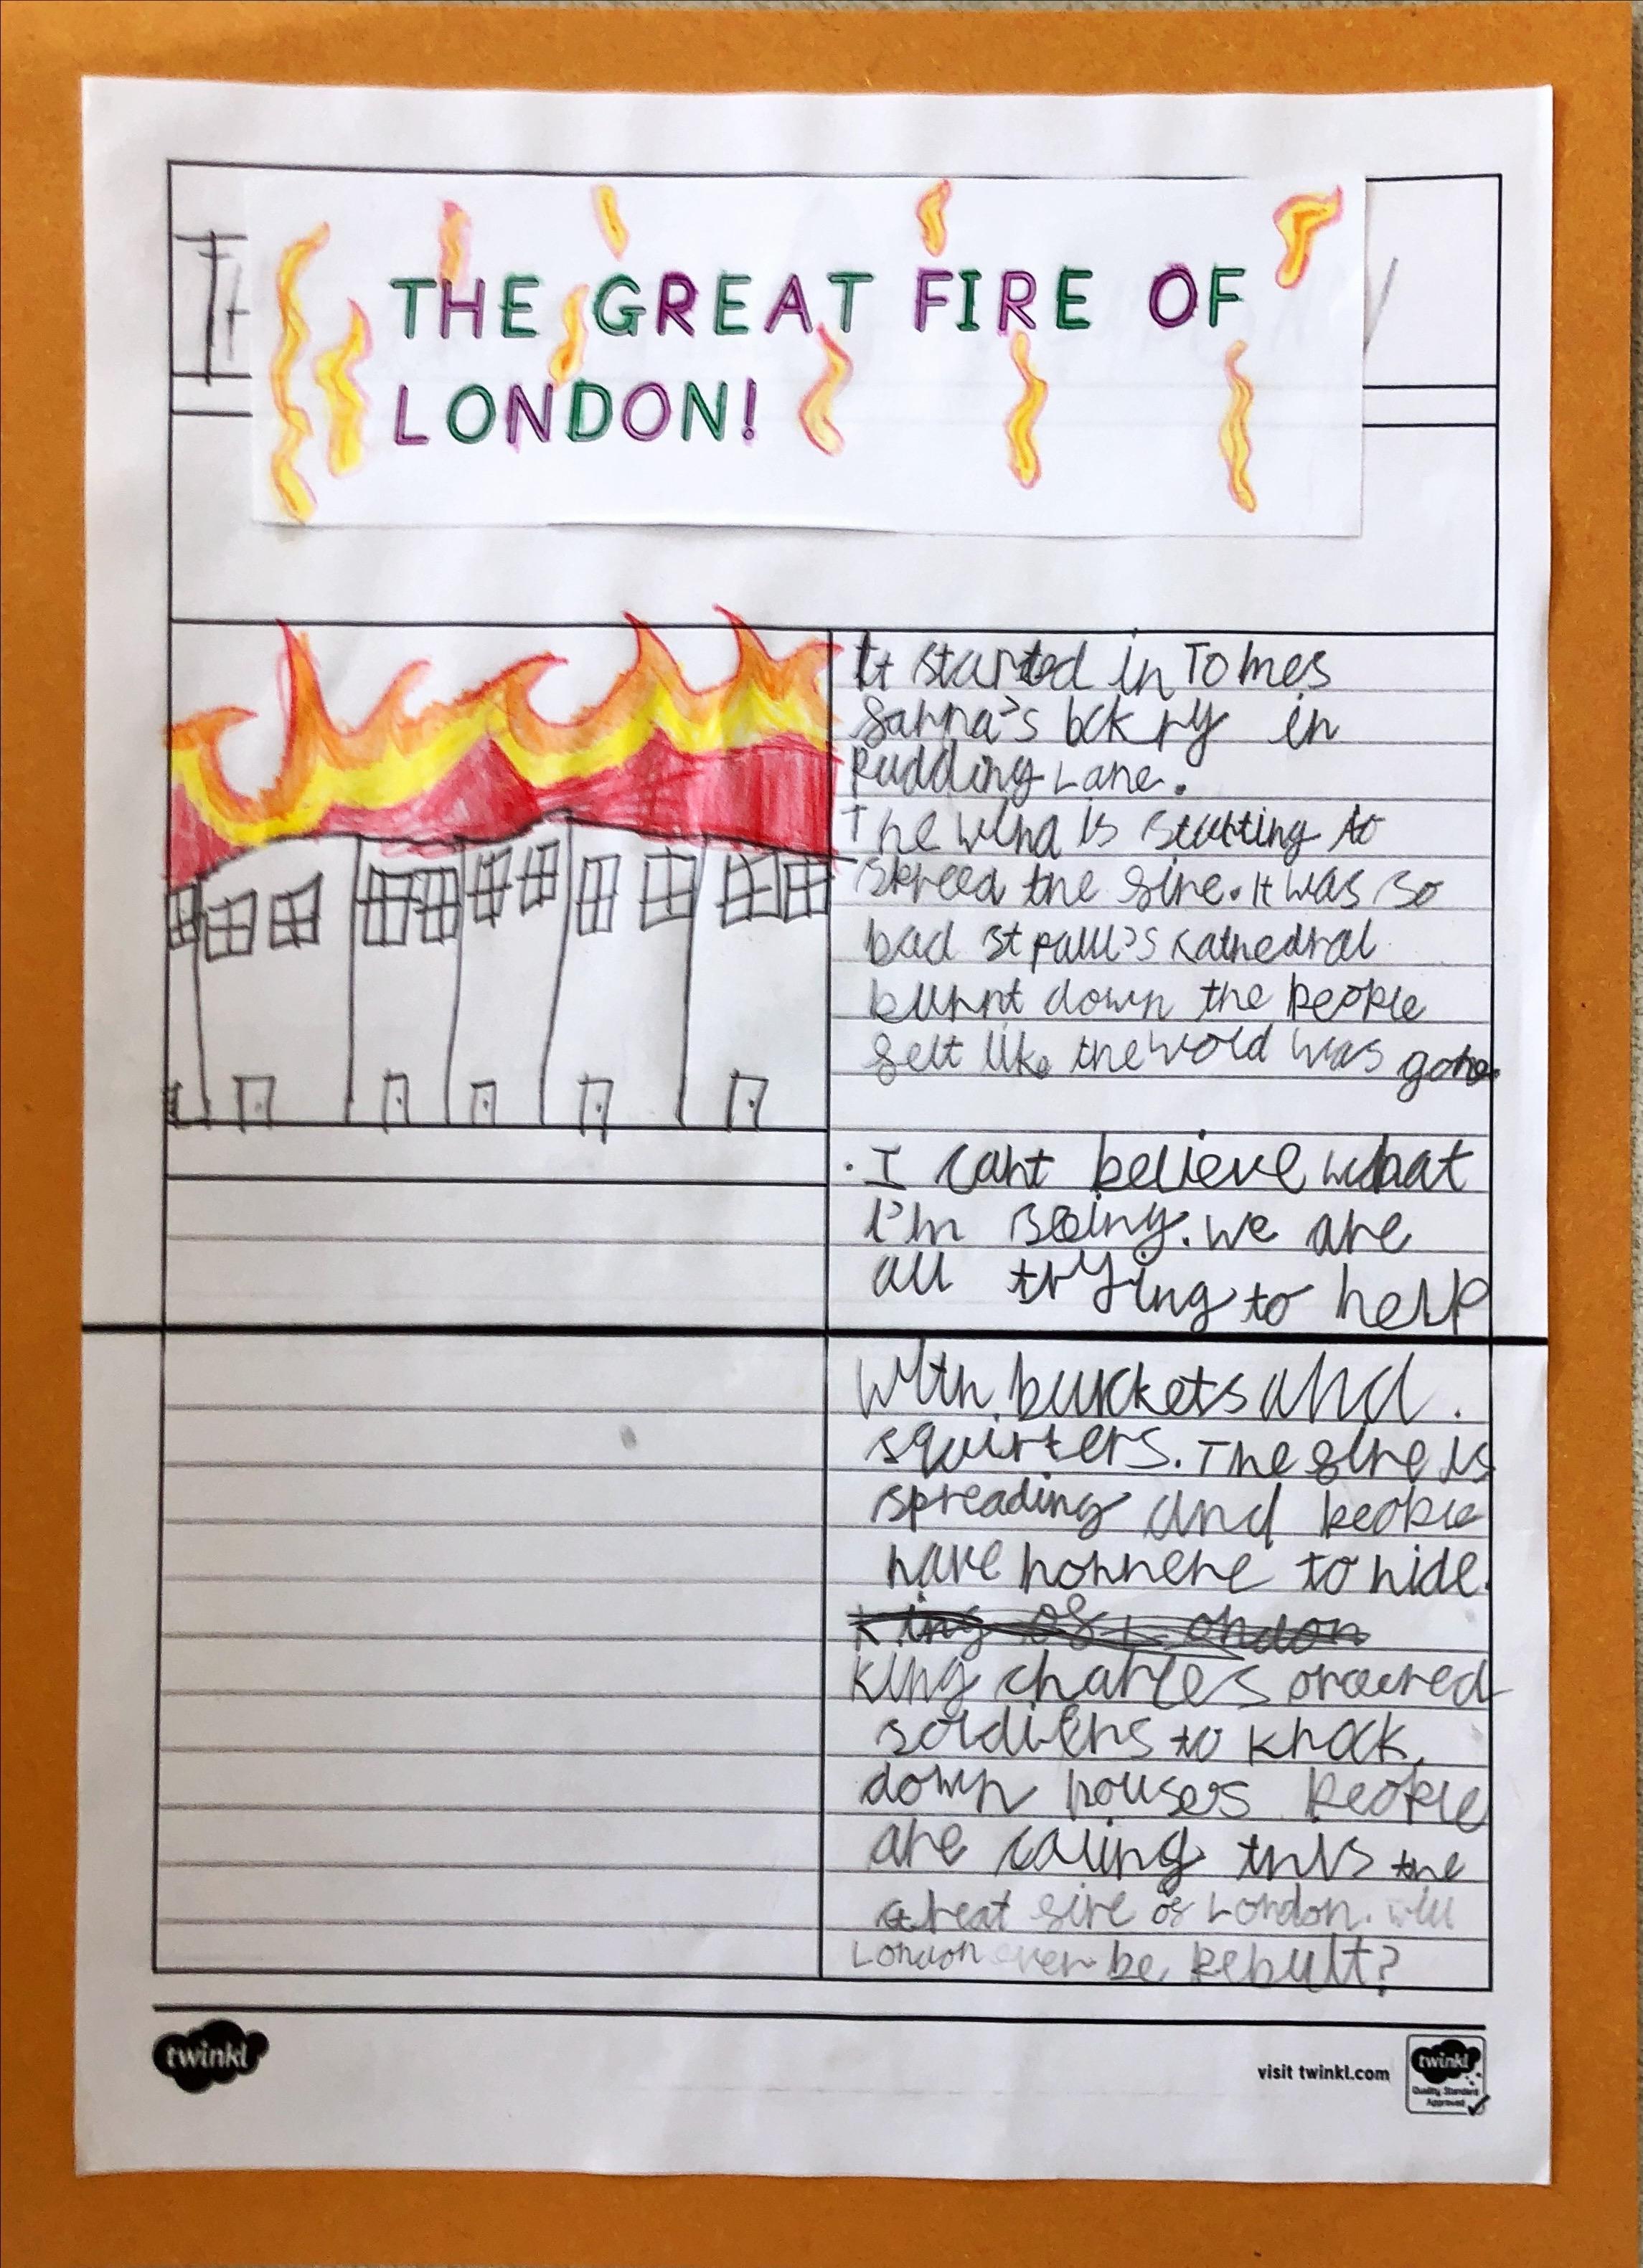 THE GREAT FIRE OF
LONDON!
It started in Tomes
farrna's bckry in
Pudding Lane.
The wind is starting to
spreed the fire. It was so
bad st paul's cathedral
burnt down the people
felt like the world was gone.
I cant believe what
I'm seeing. we are
all trying to help
with buckets and
squirters. The fire is
spreading and people
have nowhere to hide.
King of London
King charles ordered
soldiers to knock
down houses People
are caling this the
Great fire of London. will
London ever be Rebult?
twinkl
visit twinkl.com
twinkl
Quality Standard
Approved